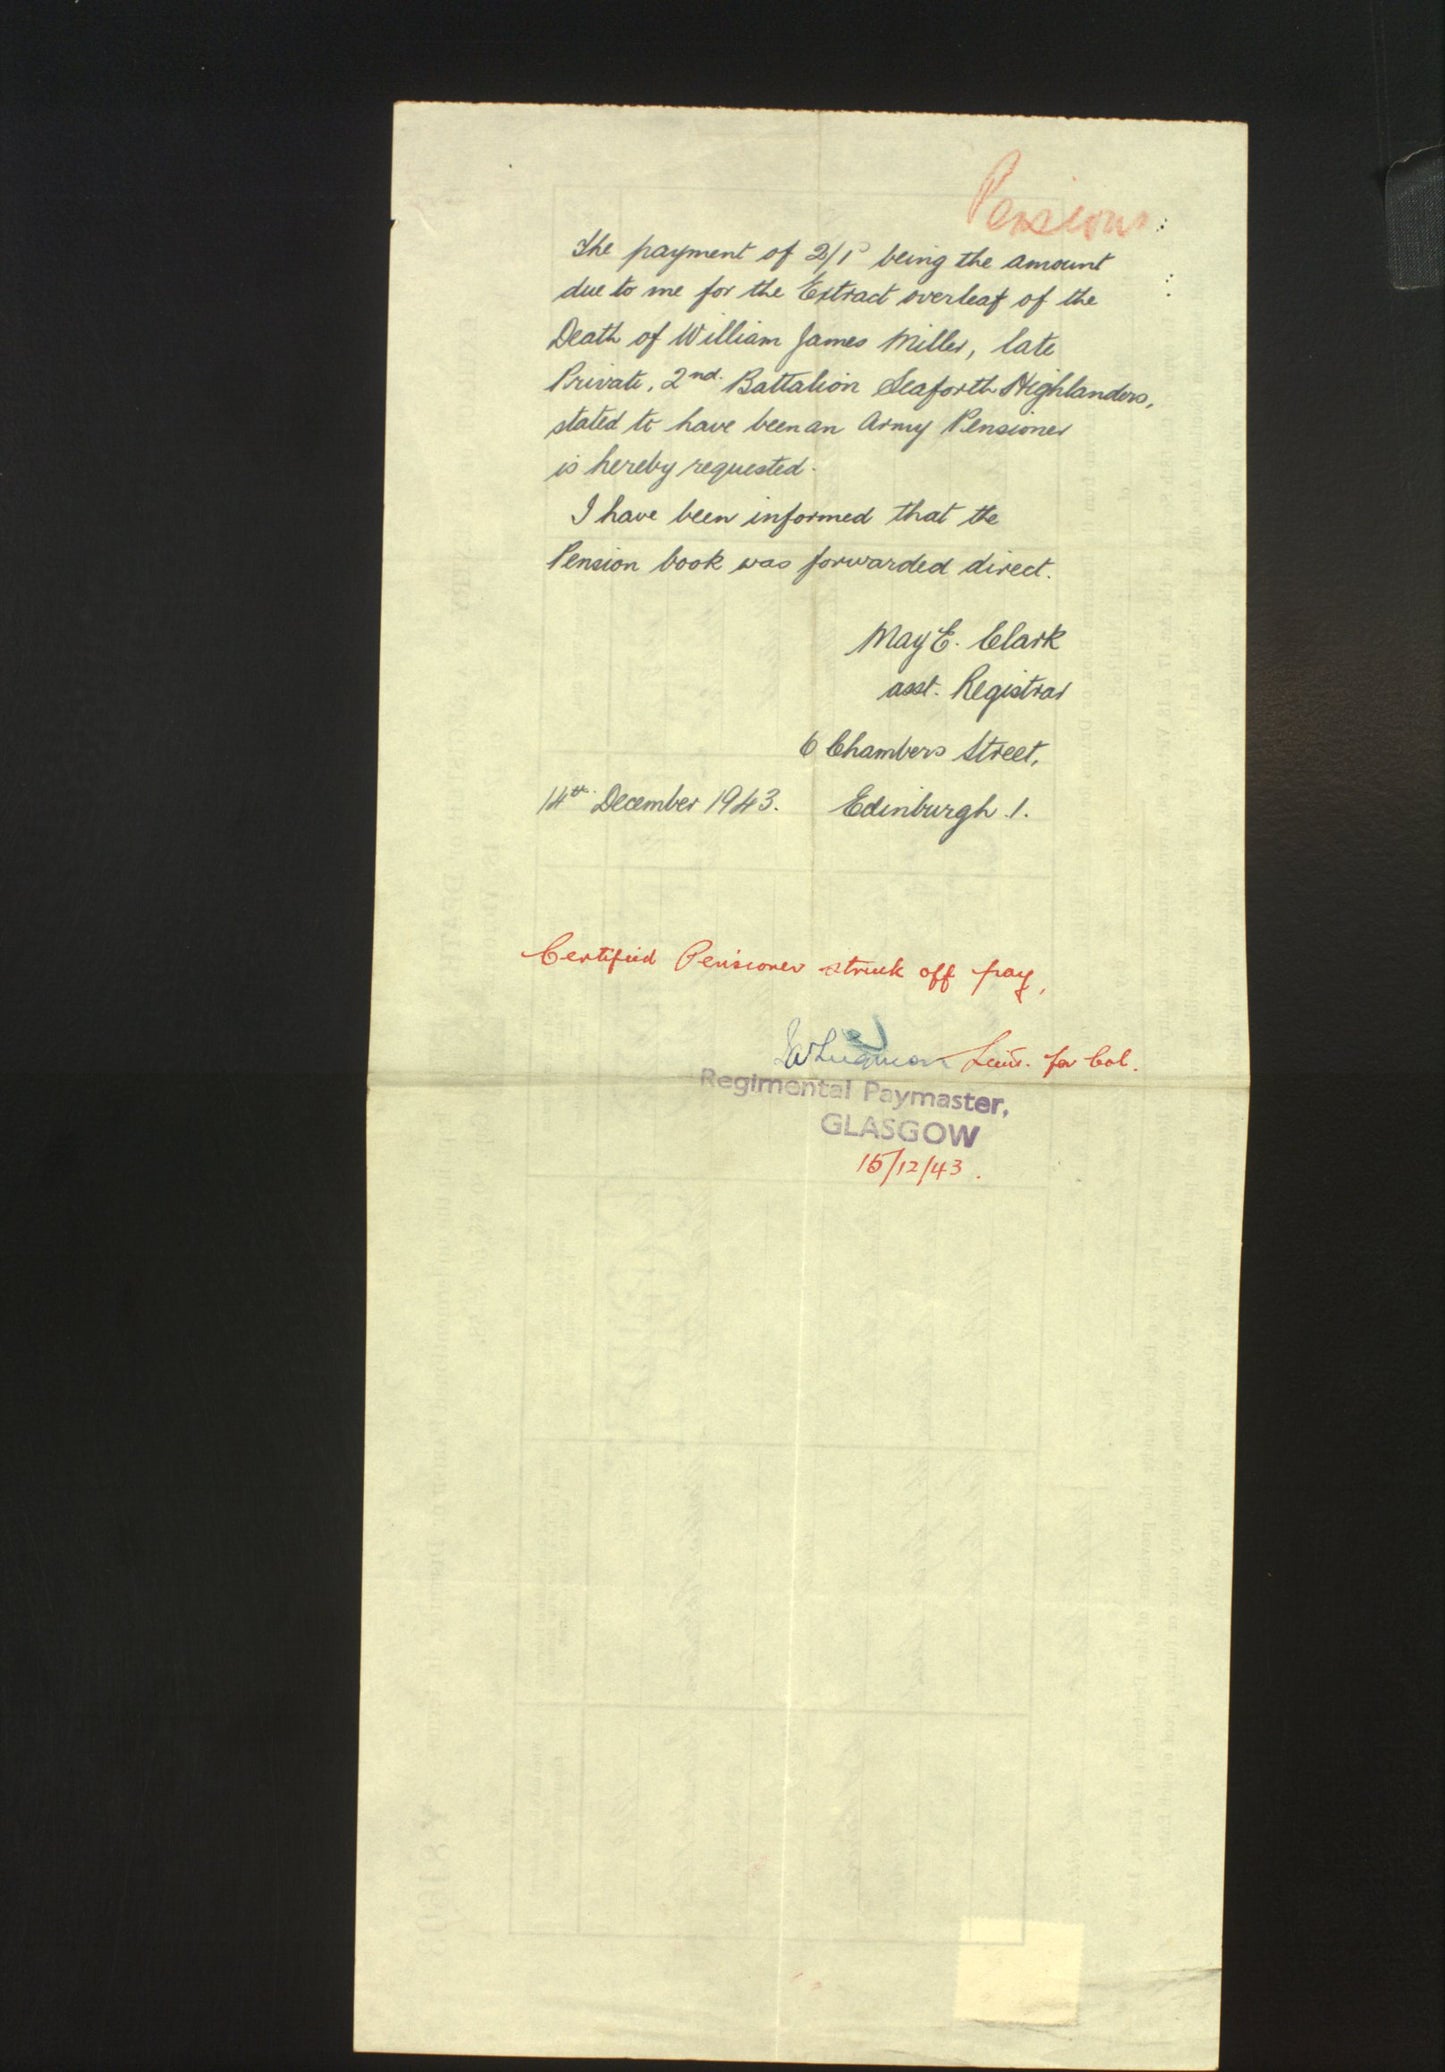 Pensions
The payment of 2/1ᴰ being the amount
due to me for the Extract overleaf of the
Death of William James Miller, late
Private, 2nd. Battalion Seaforth Highlanders,
stated to have been an Army Pensioner
is hereby requested.
I have been informed that the
Pension book was forwarded direct.
May E. Clark
asst. Registrar
6 Chambers Street,
14th December 1943. Edinburgh 1.
Certified Pensioner struck off pay,
Lieut. for Col.
Regimental Paymaster,
GLASGOW
15/12/43.